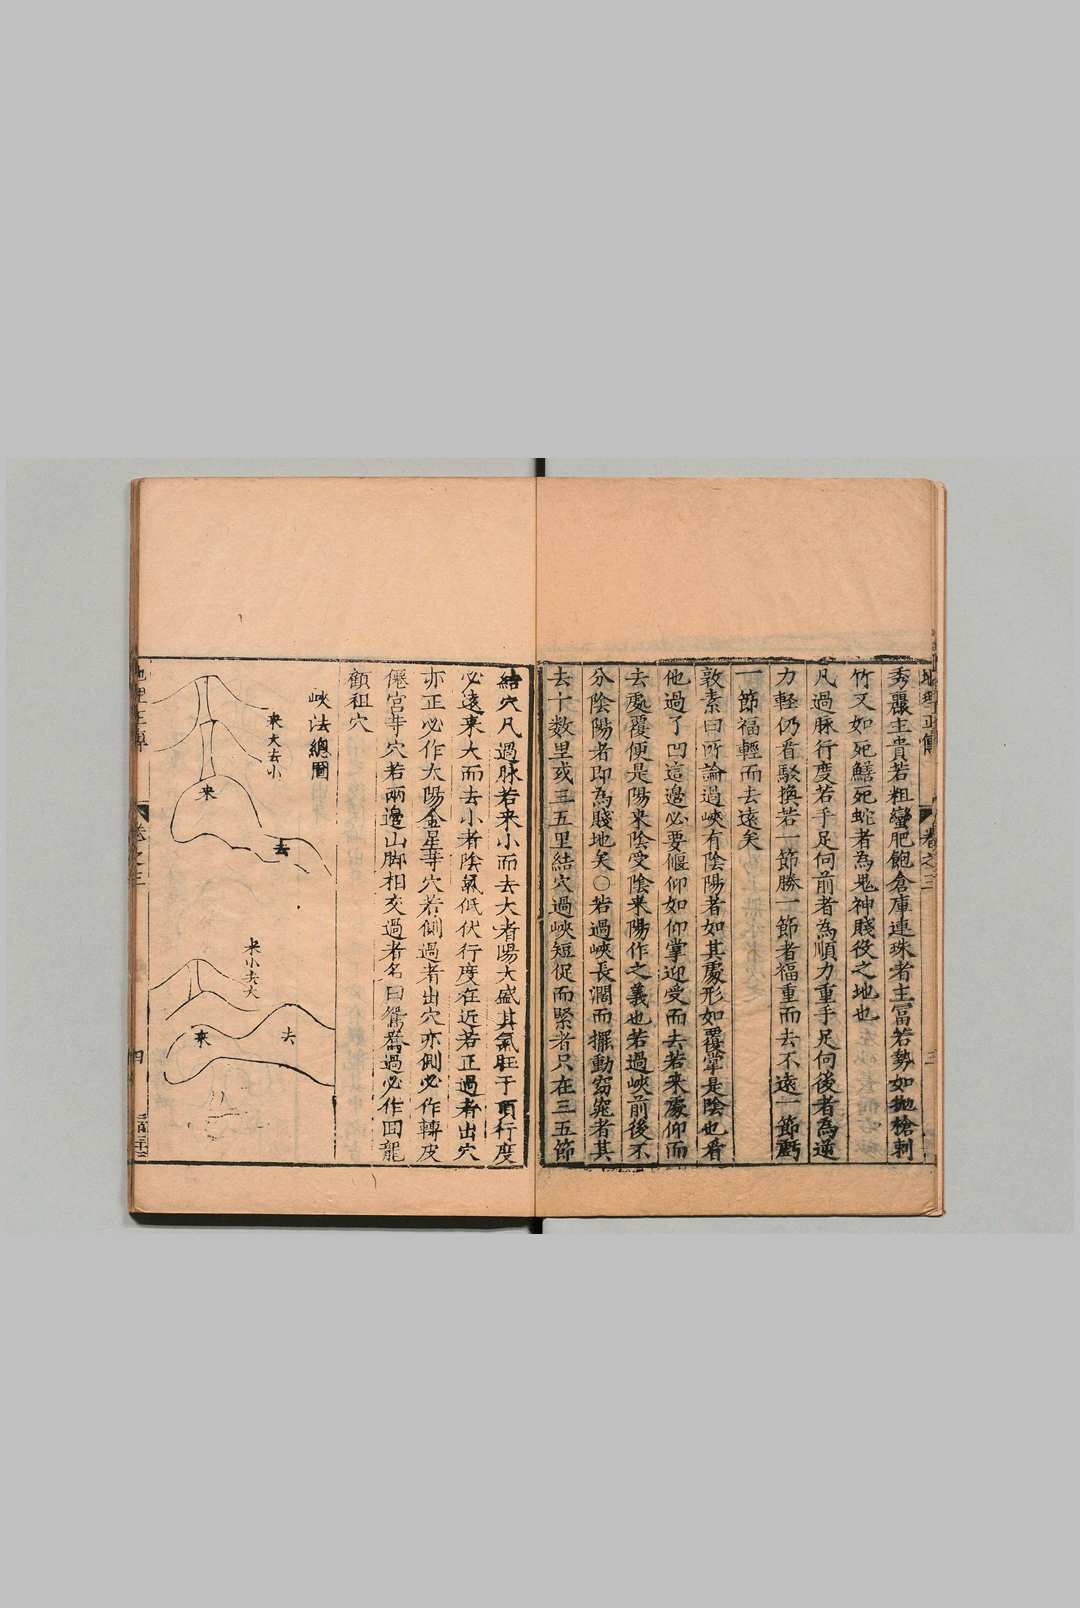 秀麗主貴若粗蠻肥飽倉庫連珠者主冨若勢如抛槍刺
竹又如死鱔死蛇者為鬼神賤役之地也
凡過脉行度若手足向前者為順力重手足向後者為逆
力軽仍看駁換若一節勝一節者福重而去不遠一節虧
一節福輕而去遠矣
敦素曰所論過峽有陰陽者如其處形如覆掌是陰也看
他過了凹這邊必要偃仰如仰掌迎受而去若来處仰而
去處覆便是陽来陰受陰来陽作之義也若過峽前後不
分陰陽者即為賤地矣〇若過峽長濶而擺動窈窕者其
去十数里或三五里結穴過峽短促而緊者只在三五節
結穴凡過脉若来小而去大者陽大盛其氣旺于頂行度
必遠来大而去小者陰氣低伏行度在近若正過者出穴
亦正必作太陽金星等穴若側過者出穴亦側必作轉皮
僊宮等穴若兩邊山脚相交過者名曰鴛鴦過必作回龍
顧祖穴
峽法總圖
来大去小
来
去
来小去大
来
去
地理正傳
卷之三
三
卷之三
四